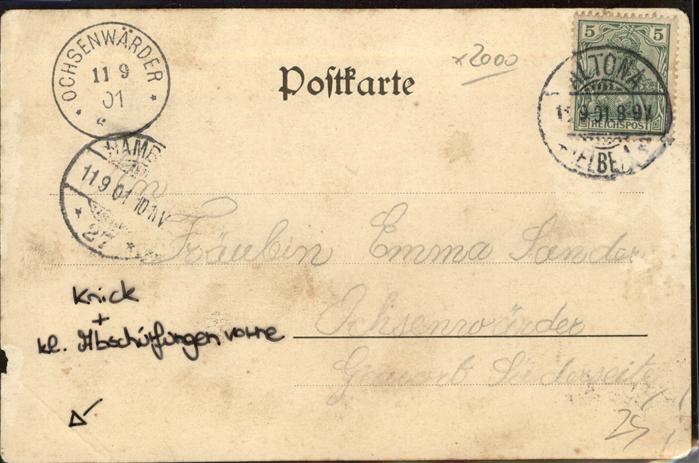 OCHSENWÄRDER
11 9
01
*2000
Postkarte
5 5
REICHSPOST
ALTONA
11.9.01.8-9V
(ELBE)
HAMB
11 9 01 10 11V
* 27 *
An
Fräulein Emma Sander
Knick
+
kl. Abschürfungen vorne
Ochsenwärder
Süderseite
25